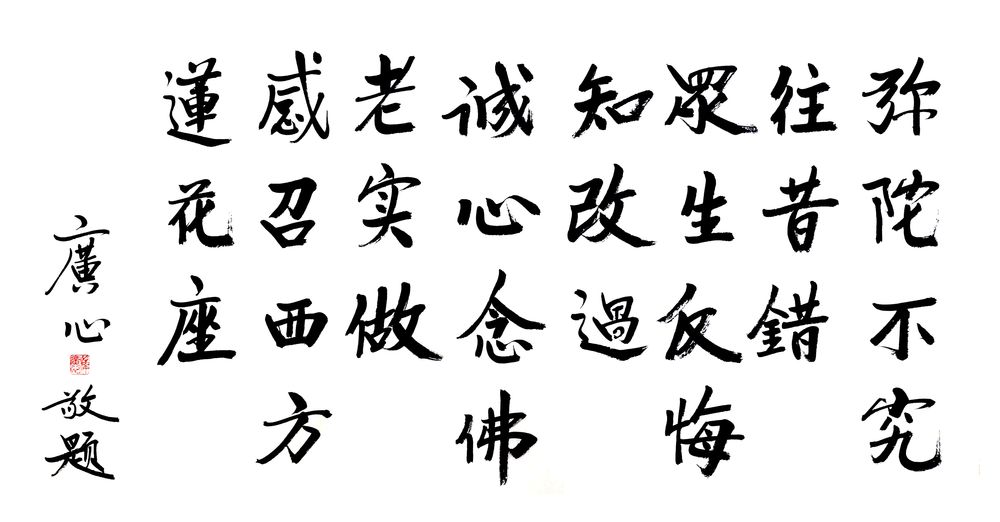 弥陀不究
往昔錯
眾生反悔
知改過
誠心念佛
老实做
感召西方
蓮花座
廣心敬题